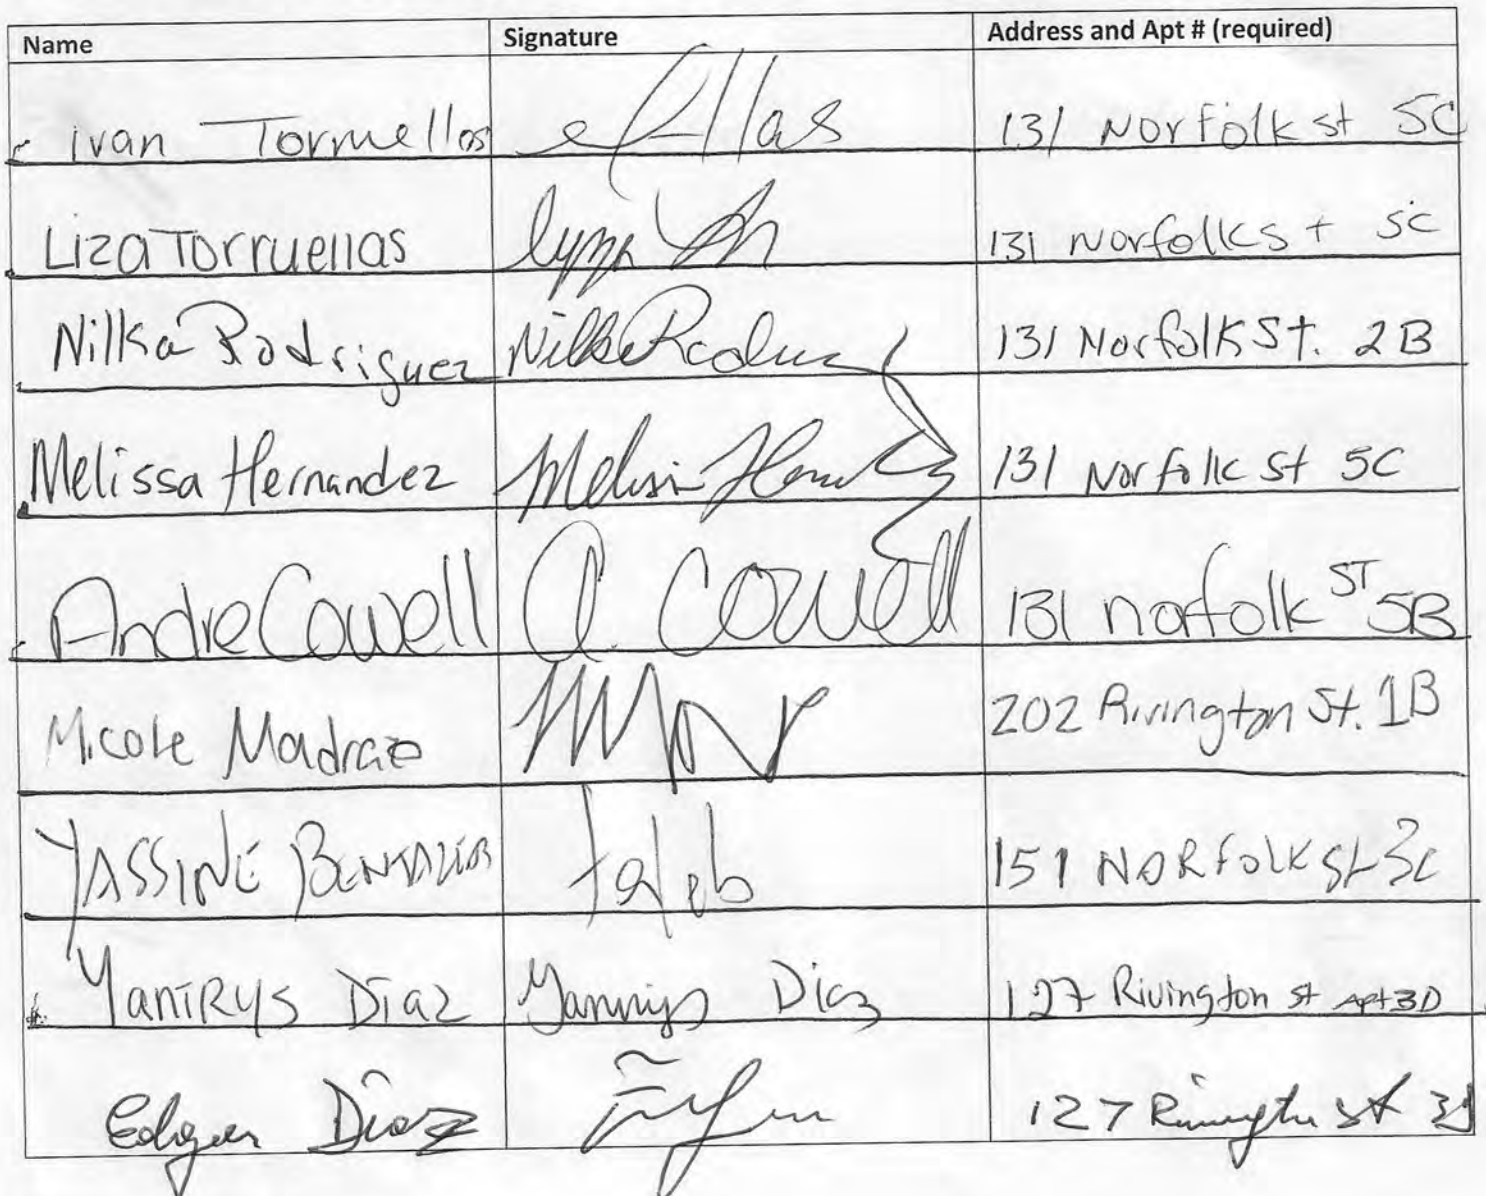 Name Signature Address and Apt # (required)
Ivan Torruellas 131 Norfolk st 5C
Liza Torruellas 131 Norfolk st 5C
Nilka Rodriguez Nilka 131 Norfolk St. 2B
Melissa Hernandez Melissa 131 Norfolk st 5C
Andre Cowell A. Cowell 131 norfolk ST 5B
Nicole 202 Rivington St. 1B
YASSINE 151 NORFOLK St 3C
YaniRys Diaz Diaz 127 Rivington st Apt 3D
Edgar Diaz 127 Rivington st